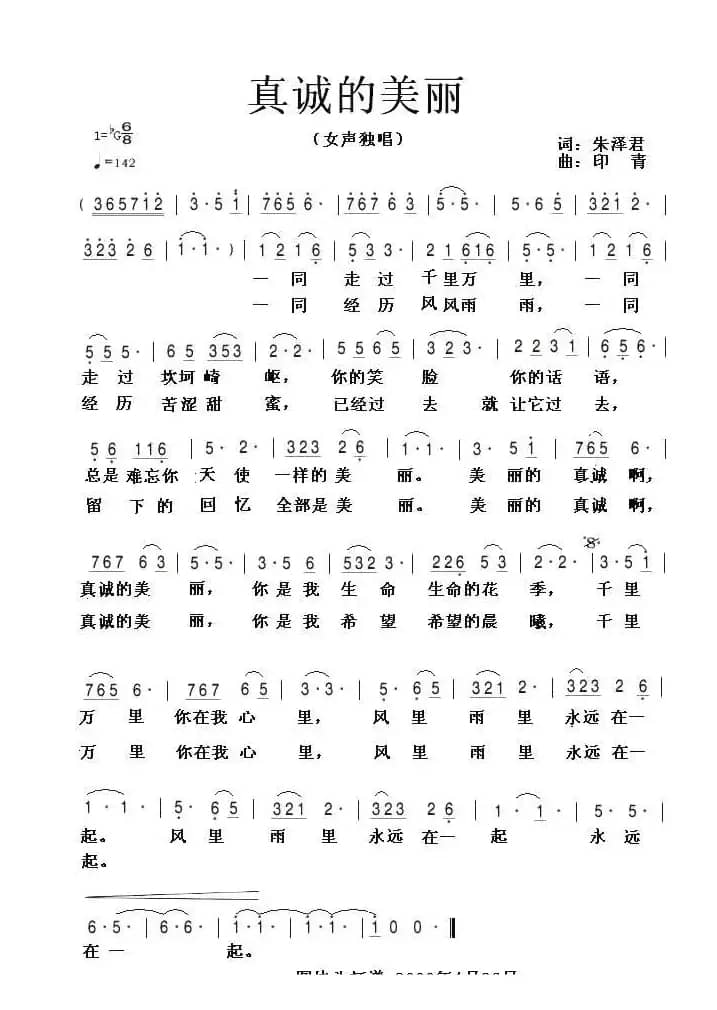 真诚的美丽
1=♭G 6/8
（女声独唱）
词：朱泽君
♩.=142
曲：印 青
( 365712 | 3· 5 1 | 765 6· | 767 6 3 | 5· 5· | 5· 6 5 | 321 2· |
323 2 6 | 1· 1· ) | 1 2 1 6 | 5 3 3· | 2 1 616 | 5· 5· | 1 2 1 6 |
一 同 走 过 千里万 里， 一 同
一 同 经 历 风风雨 雨， 一 同
5 5 5· | 6 5 353 | 2· 2· | 5 5 6 5 | 3 2 3· | 2 2 3 1 | 6· 5 6· |
走 过 坎坷 崎 岖， 你的笑 脸 你的话 语，
经 历 苦涩 甜 蜜， 已经过 去 就 让它过 去，
5 6 116 | 5· 2· | 323 2 6 | 1· 1· | 3· 5 1 | 765 6· |
总是 难忘你 天 使 一样的 美 丽。 美 丽的 真诚 啊，
留 下 的 回 忆 全部是 美 丽。 美 丽的 真诚 啊，
767 6 3 | 5· 5· | 3· 5 6 | 532 3· | 226 5 3 | 2· 2· | 3· 5 1 |
真诚的美 丽， 你 是 我 生 命 生命的花 季， 千 里
真诚的美 丽， 你 是 我 希 望 希望的晨 曦， 千 里
765 6· | 767 6 5 | 3· 3· | 5· 6 5 | 321 2· | 323 2 6 |
万 里 你在我 心 里， 风 里 雨 里 永远 在一
万 里 你在我 心 里， 风 里 雨 里 永远 在一
1· 1· | 5· 6 5 | 321 2· | 323 2 6 | 1· 1· | 5· 5· |
起。 风 里 雨 里 永远 在一 起 永 远
起。
6· 5· | 6· 6· | 1· 1· | 1· 1· | 1 0 0 ‖
在 一 起。